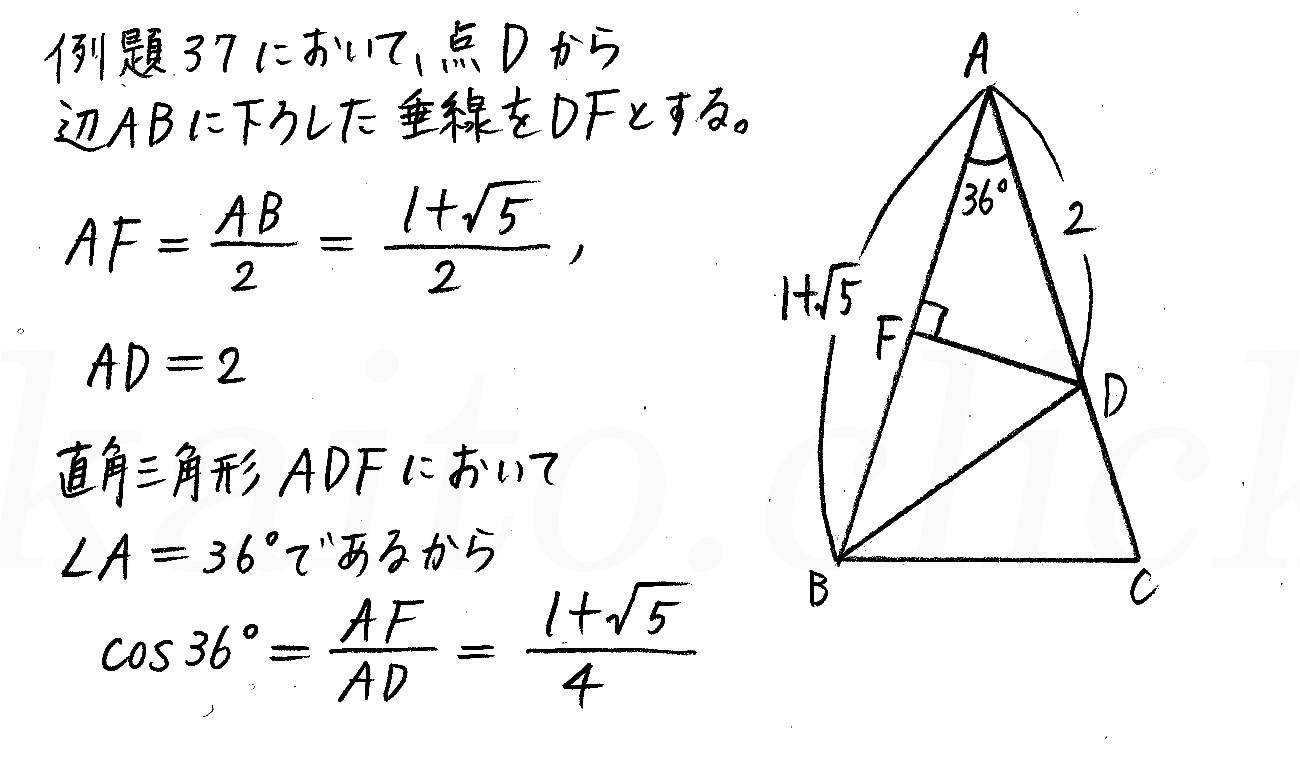 例題37において、点Dから
辺ABに下ろした垂線をDFとする。
AF = AB/2 = (1+√5)/2 ,
AD = 2
直角三角形ADFにおいて
∠A = 36°であるから
cos36° = AF/AD = (1+√5)/4
A
36°
2
1+√5
F
D
B
C
kaito.click